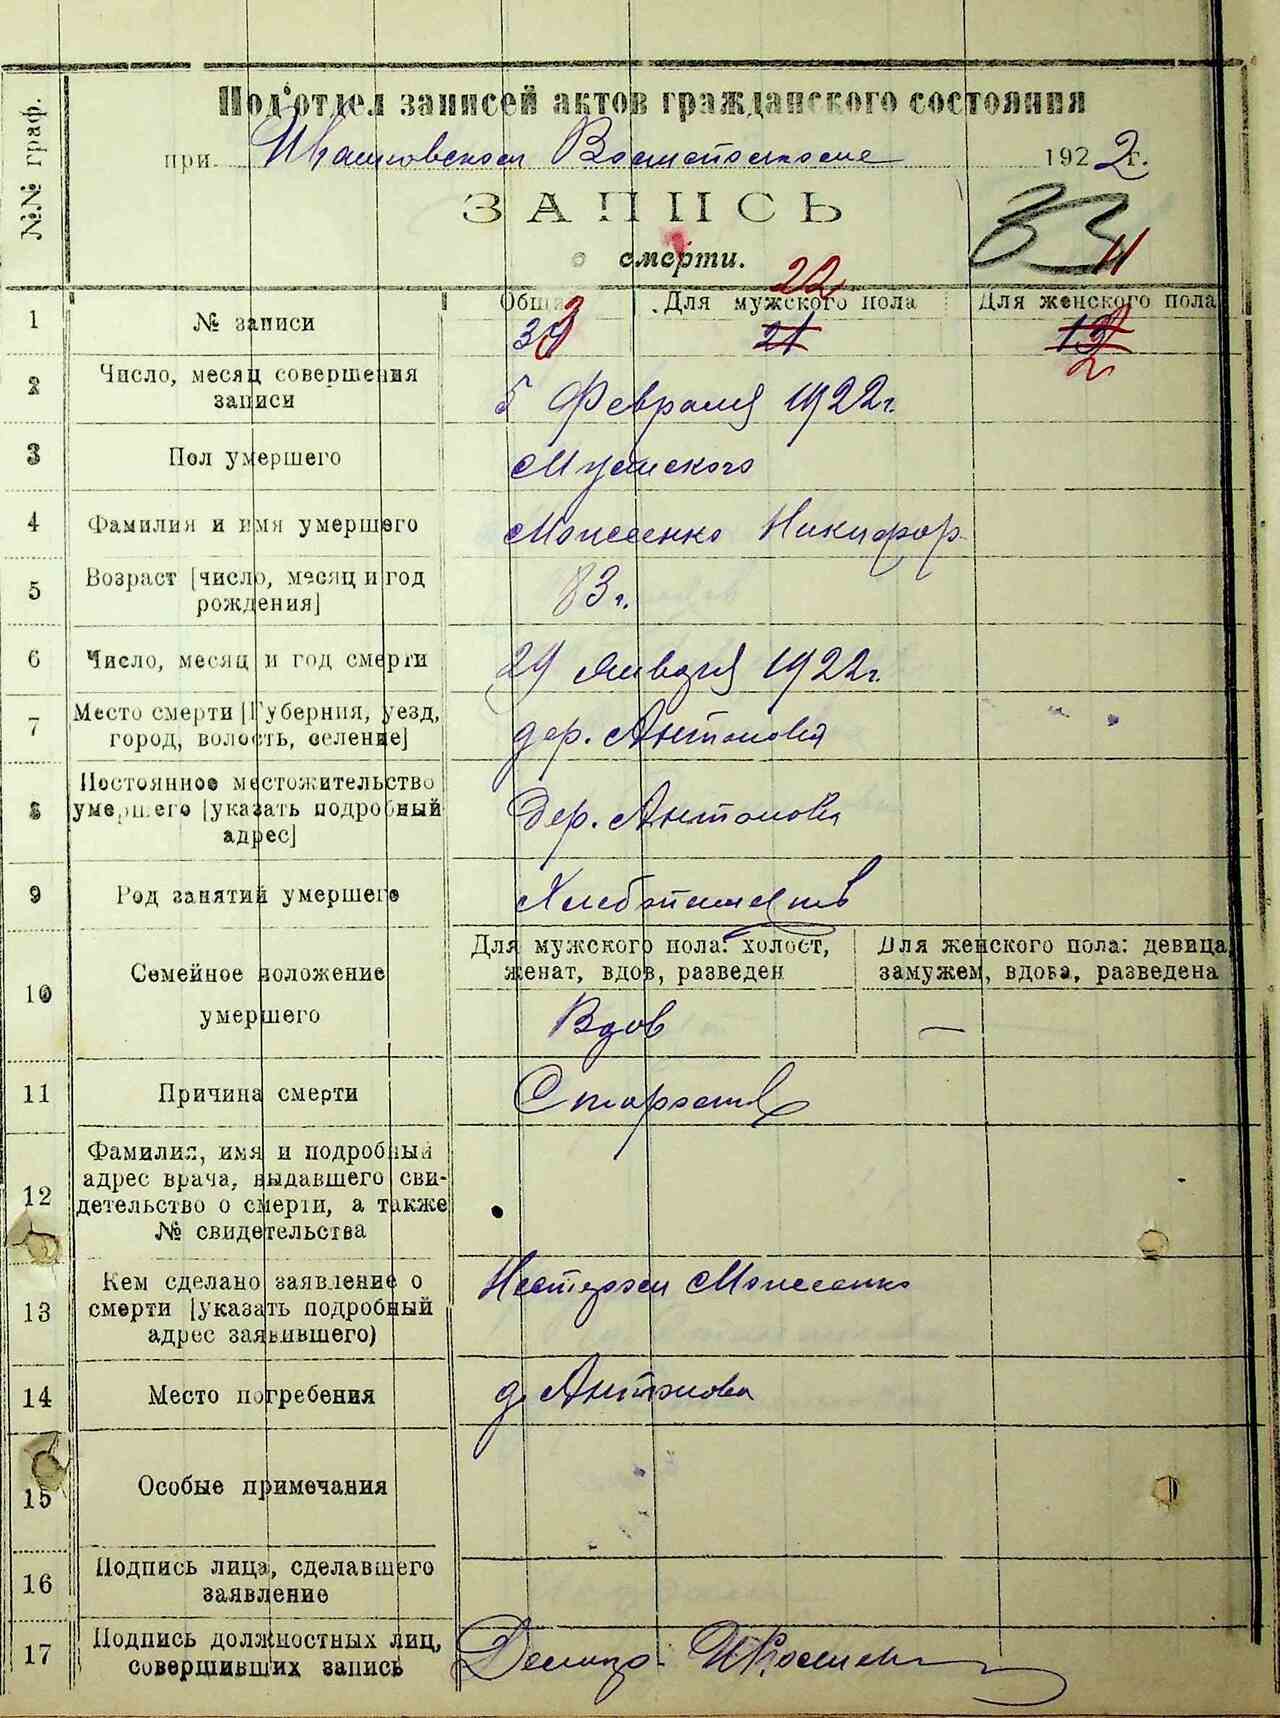 Под'отдел записей актов гражданского состояния
при Ивашковском 1922 г.
ЗАПИСЬ
33
о смерти.
11
№№ граф.
22
Общая Для мужского пола Для женского пола
1 № записи 3 21 2
2 Число, месяц совершения
записи
5 Февраля 1922 г.
3 Пол умершего Мужского
4 Фамилия и имя умершего Моисеенко Никифор
5 Возраст [число, месяц и год
рождения]
83 г.
6 Число, месяц и год смерти 29 Января 1922 г.
7 Место смерти [Губерния, уезд,
город, волость, селение]
дер. Антоновка
8 Постоянное местожительство
умершего [указать подробный
адрес]
Дер. Антоновка
9 Род занятий умершего Хлебопашество
10 Семейное положение
умершего
Для мужского пола: холост,
женат, вдов, разведен
Для женского пола: девица,
замужем, вдова, разведена
Вдов —
11 Причина смерти Старость
12 Фамилия, имя и подробный
адрес врача, выдавшего сви-
детельство о смерти, а также
№ свидетельства
13 Кем сделано заявление о
смерти [указать подробный
адрес заявившего)
Нестером Моисеенко
14 Место погребения д. Антоновка
15 Особые примечания
16 Подпись лица, сделавшего
заявление
17 Подпись должностных лиц,
совершивших запись